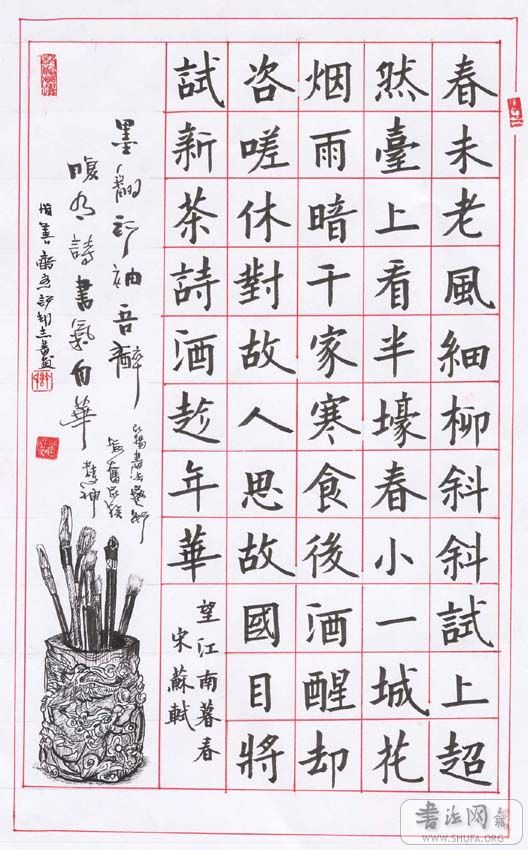 春未老風細柳斜斜試上超
然臺上看半壕春小一城花
烟雨暗千家寒食後酒醒却
咨嗟休對故人思故國且將
試新茶詩酒趁年華
望江南暮春
宋蘇軾
墨翻衫袖吾醉
腹有詩書氣自華
书法网
WWW.SHUFA.ORG